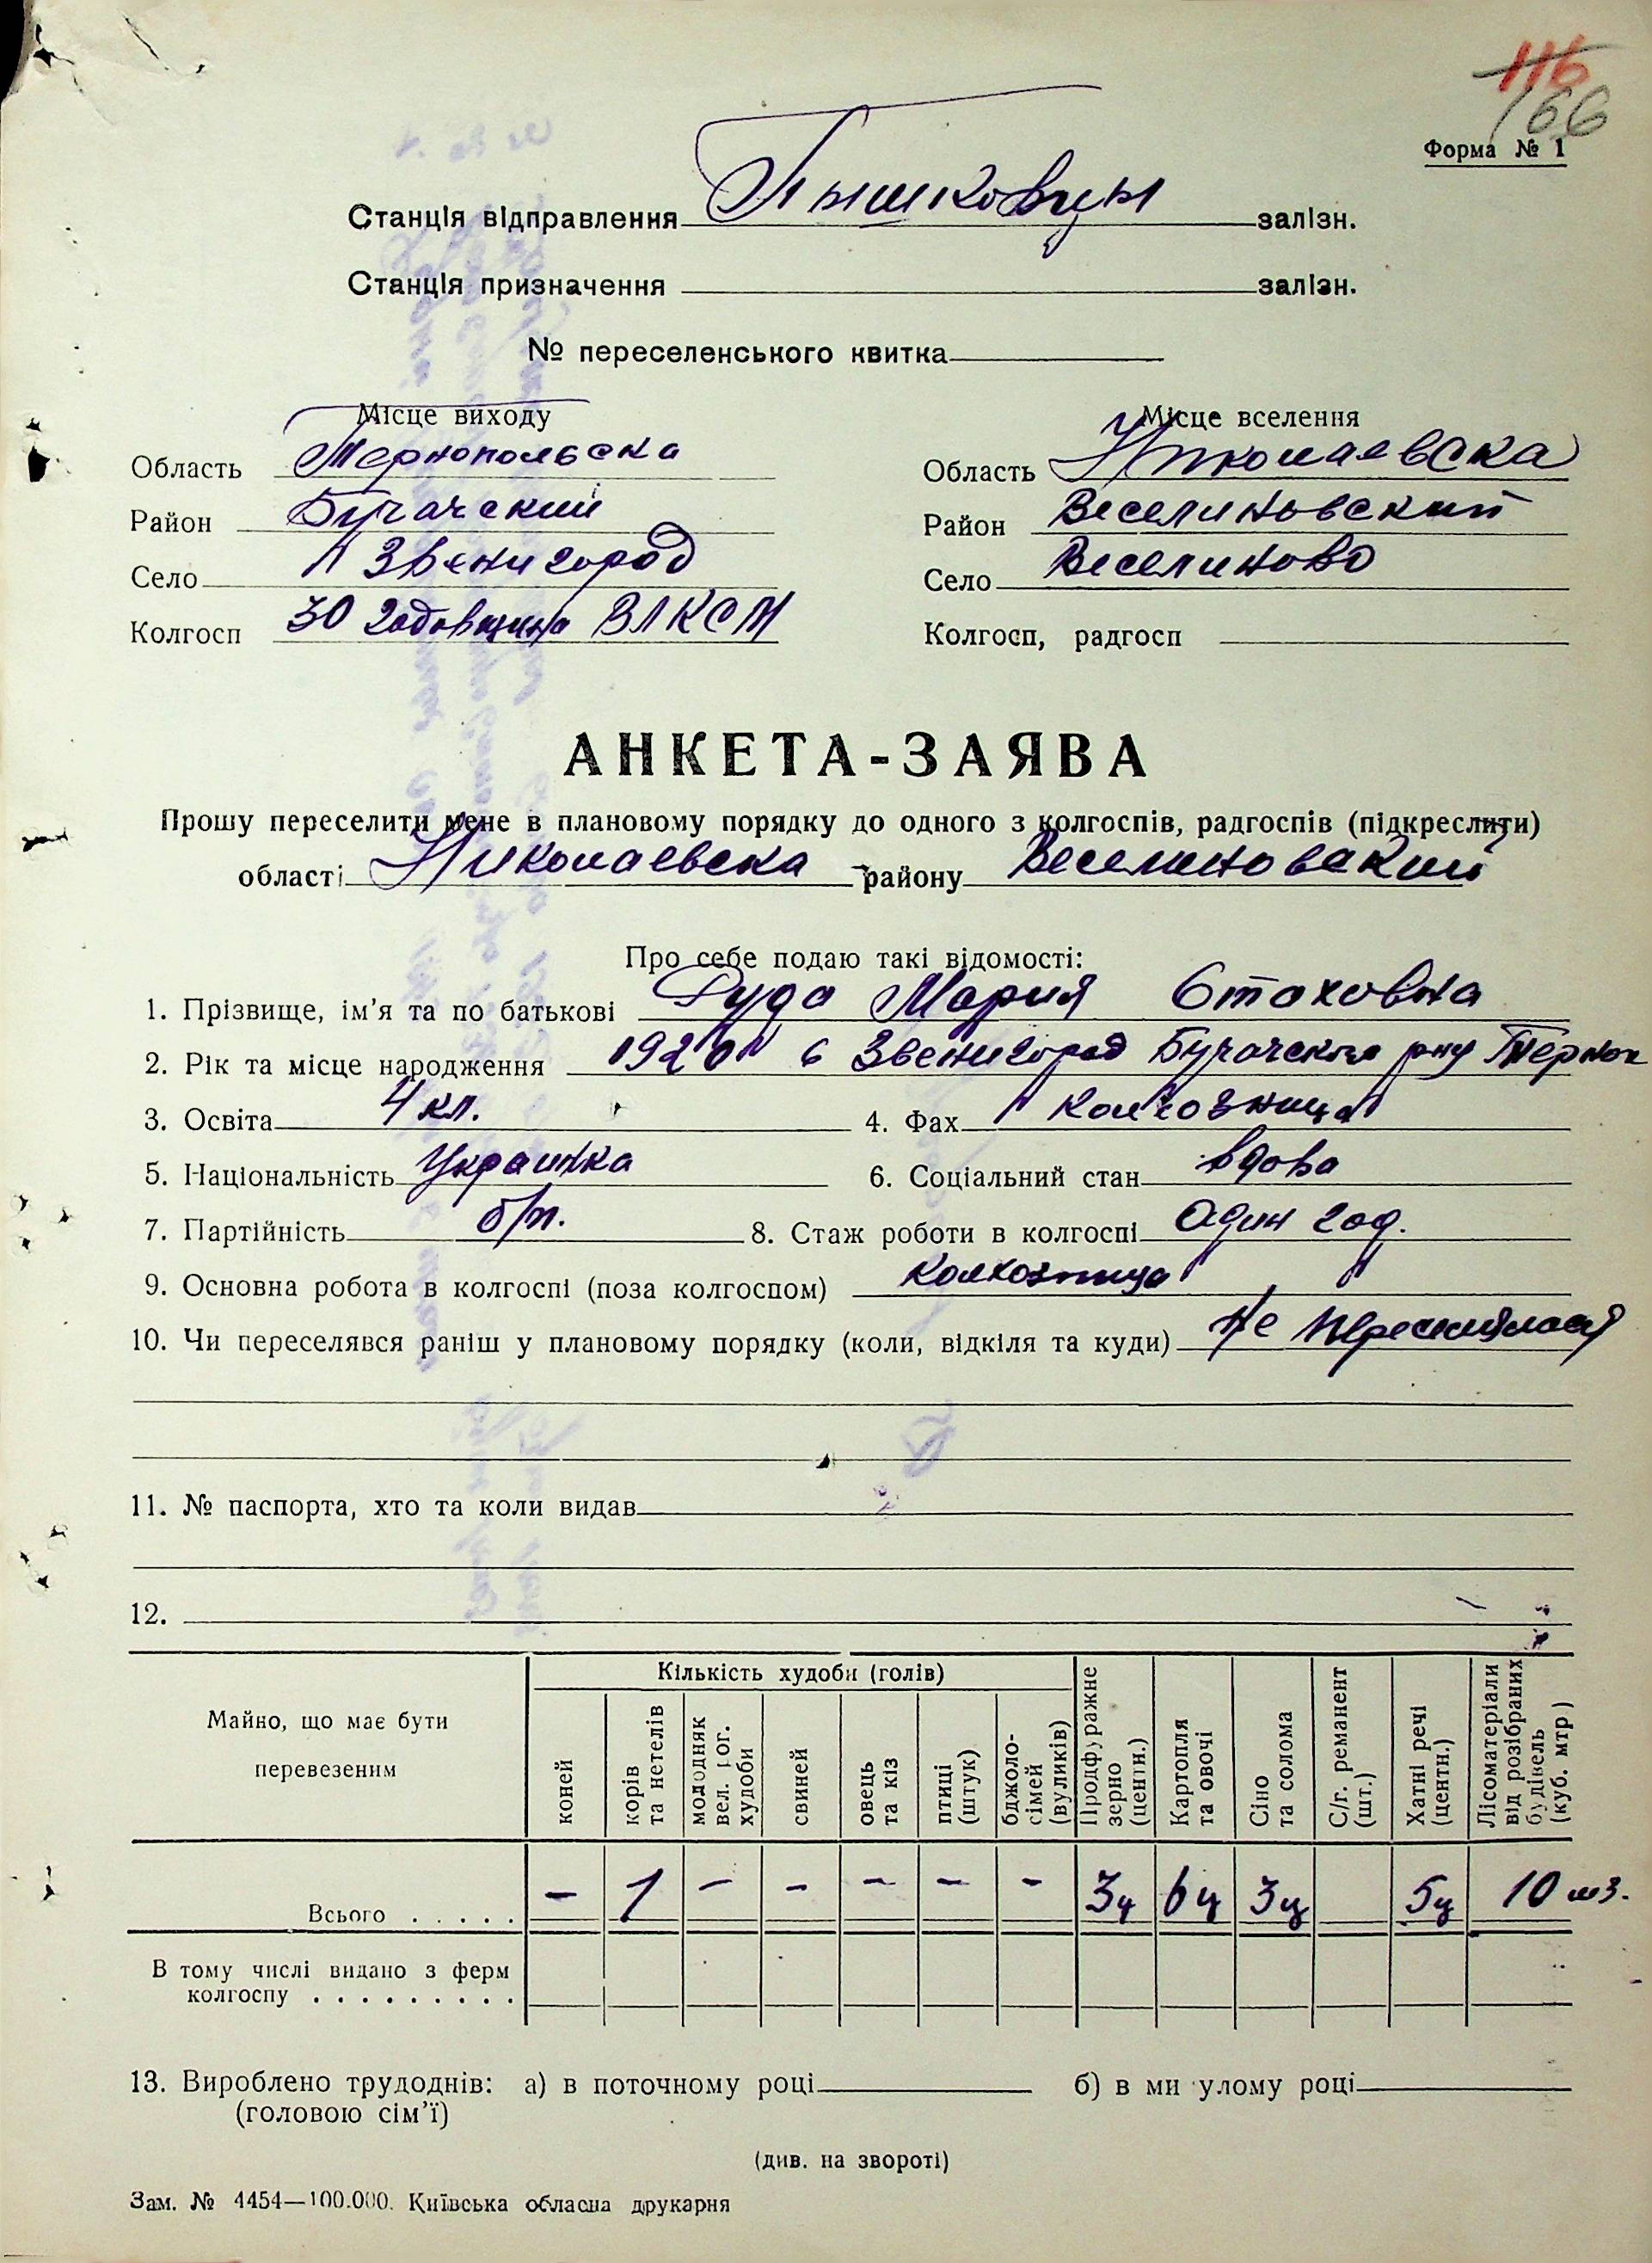 116
166
Форма № 1
Станція відправлення Пышковцы залізн.
Станція призначення залізн.
№ переселенського квитка
Місце виходу
Область Тернопольска
Район Бучачский
Село Звенигород
Колгосп 30 Годовщина ВЛКСМ
Місце вселення
Область Николаевска
Район Веселиновский
Село Веселиново
Колгосп, радгосп
АНКЕТА-ЗАЯВА
Прошу переселити мене в плановому порядку до одного з колгоспів, радгоспів (підкреслити)
області Николаевска району Веселиновский
Про себе подаю такі відомості:
1. Прізвище, ім'я та по батькові Дуда Мария Стаховна
2. Рік та місце народження 1920 с Звенигород Бучачского р-ну Терноп
3. Освіта 4 кл. 4. Фах колхозница
5. Національність Украинка 6. Соціальний стан вдова
7. Партійність б/п. 8. Стаж роботи в колгоспі Один год.
9. Основна робота в колгоспі (поза колгоспом) колхозница
10. Чи переселявся раніш у плановому порядку (коли, відкіля та куди) Не
11. № паспорта, хто та коли видав
12.
Майно, що має бути перевезеним
Кількість худоби (голів)
коней
корів та нетелів
молодняк вел. рог. худоби
свиней
овець та кіз
птиці (штук)
бджоло-сімей (вуликів)
Продфуражне зерно (центн.)
Картопля та овочі
Сіно та солома
С/г. реманент (шт.)
Хатні речі (центн.)
Лісоматеріали від розібраних будівель (куб. мтр)
Всього . . . . . — 1 — — — — — 3ц 6ц 3ц 5ц 10 м3.
В тому числі видано з ферм
колгоспу . . . . . . . . .
13. Вироблено трудоднів: а) в поточному році б) в ми улому році
(головою сім'ї)
(див. на звороті)
Зам. № 4454—100.000. Київська обласна друкарня